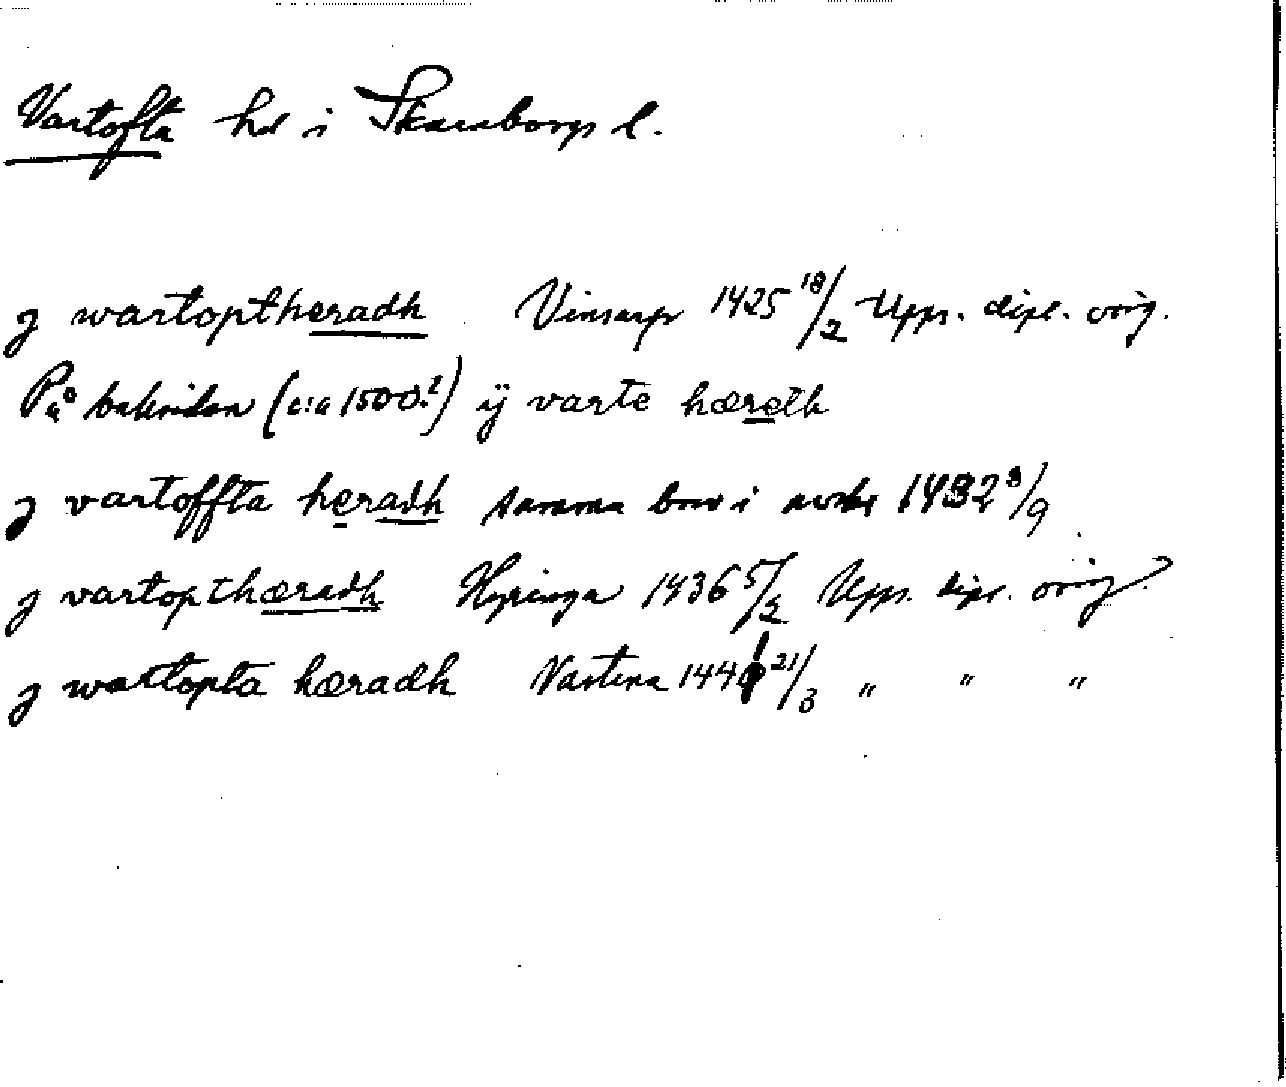 Vartofta hd i Skaraborgs l.
j wartoptheradh Vinsarp 1425 18/2 Upps. dipl. orig.
På baksidan (c:a 1500?) ij varte hæreth
j vartoffta heradh samma brev i 1432 3/9
j vartopthæradh 1436 5/2 Upps. dipl. orig.
j wartopta hæradh Vastena 144 21/3 " " "